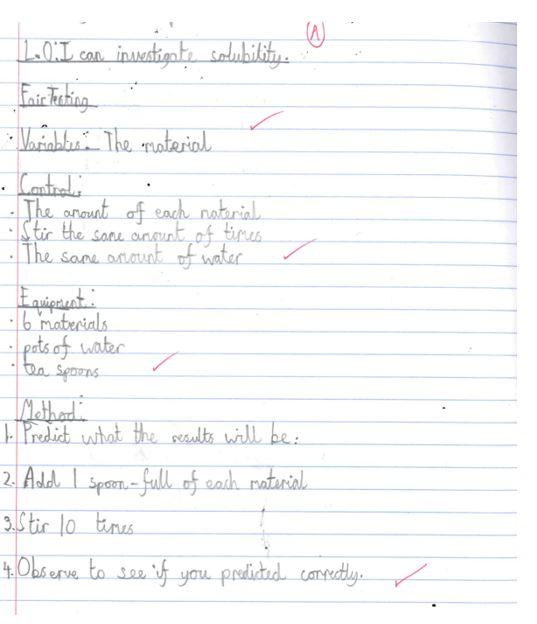 L.O: I can investigate solubility.
Fair Testing
Variables:- The material
Control:
· The amount of each material
· Stir the same amount of times
· The same amount of water
Equipment:
· 6 materials
· pots of water
· tea spoons
Method:
1. Predict what the results will be:
2. Add 1 spoon-full of each material
3. Stir 10 times
4. Observe to see if you predicted correctly.